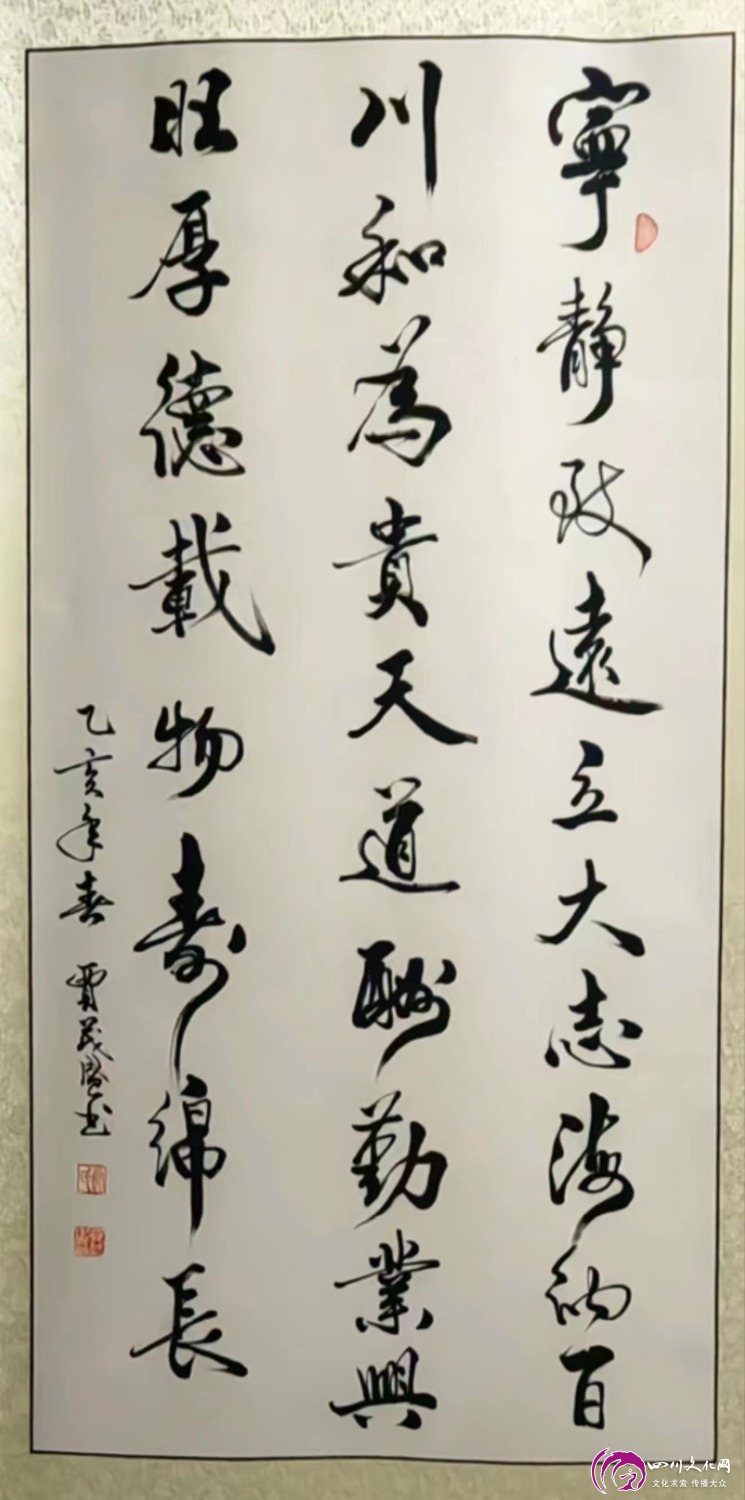 寧靜致遠立大志海納百
川和為貴天道酬勤業興
旺厚德載物壽綿長
乙亥年春 賈茂盛书
四川文化网
文化求索 传播大众